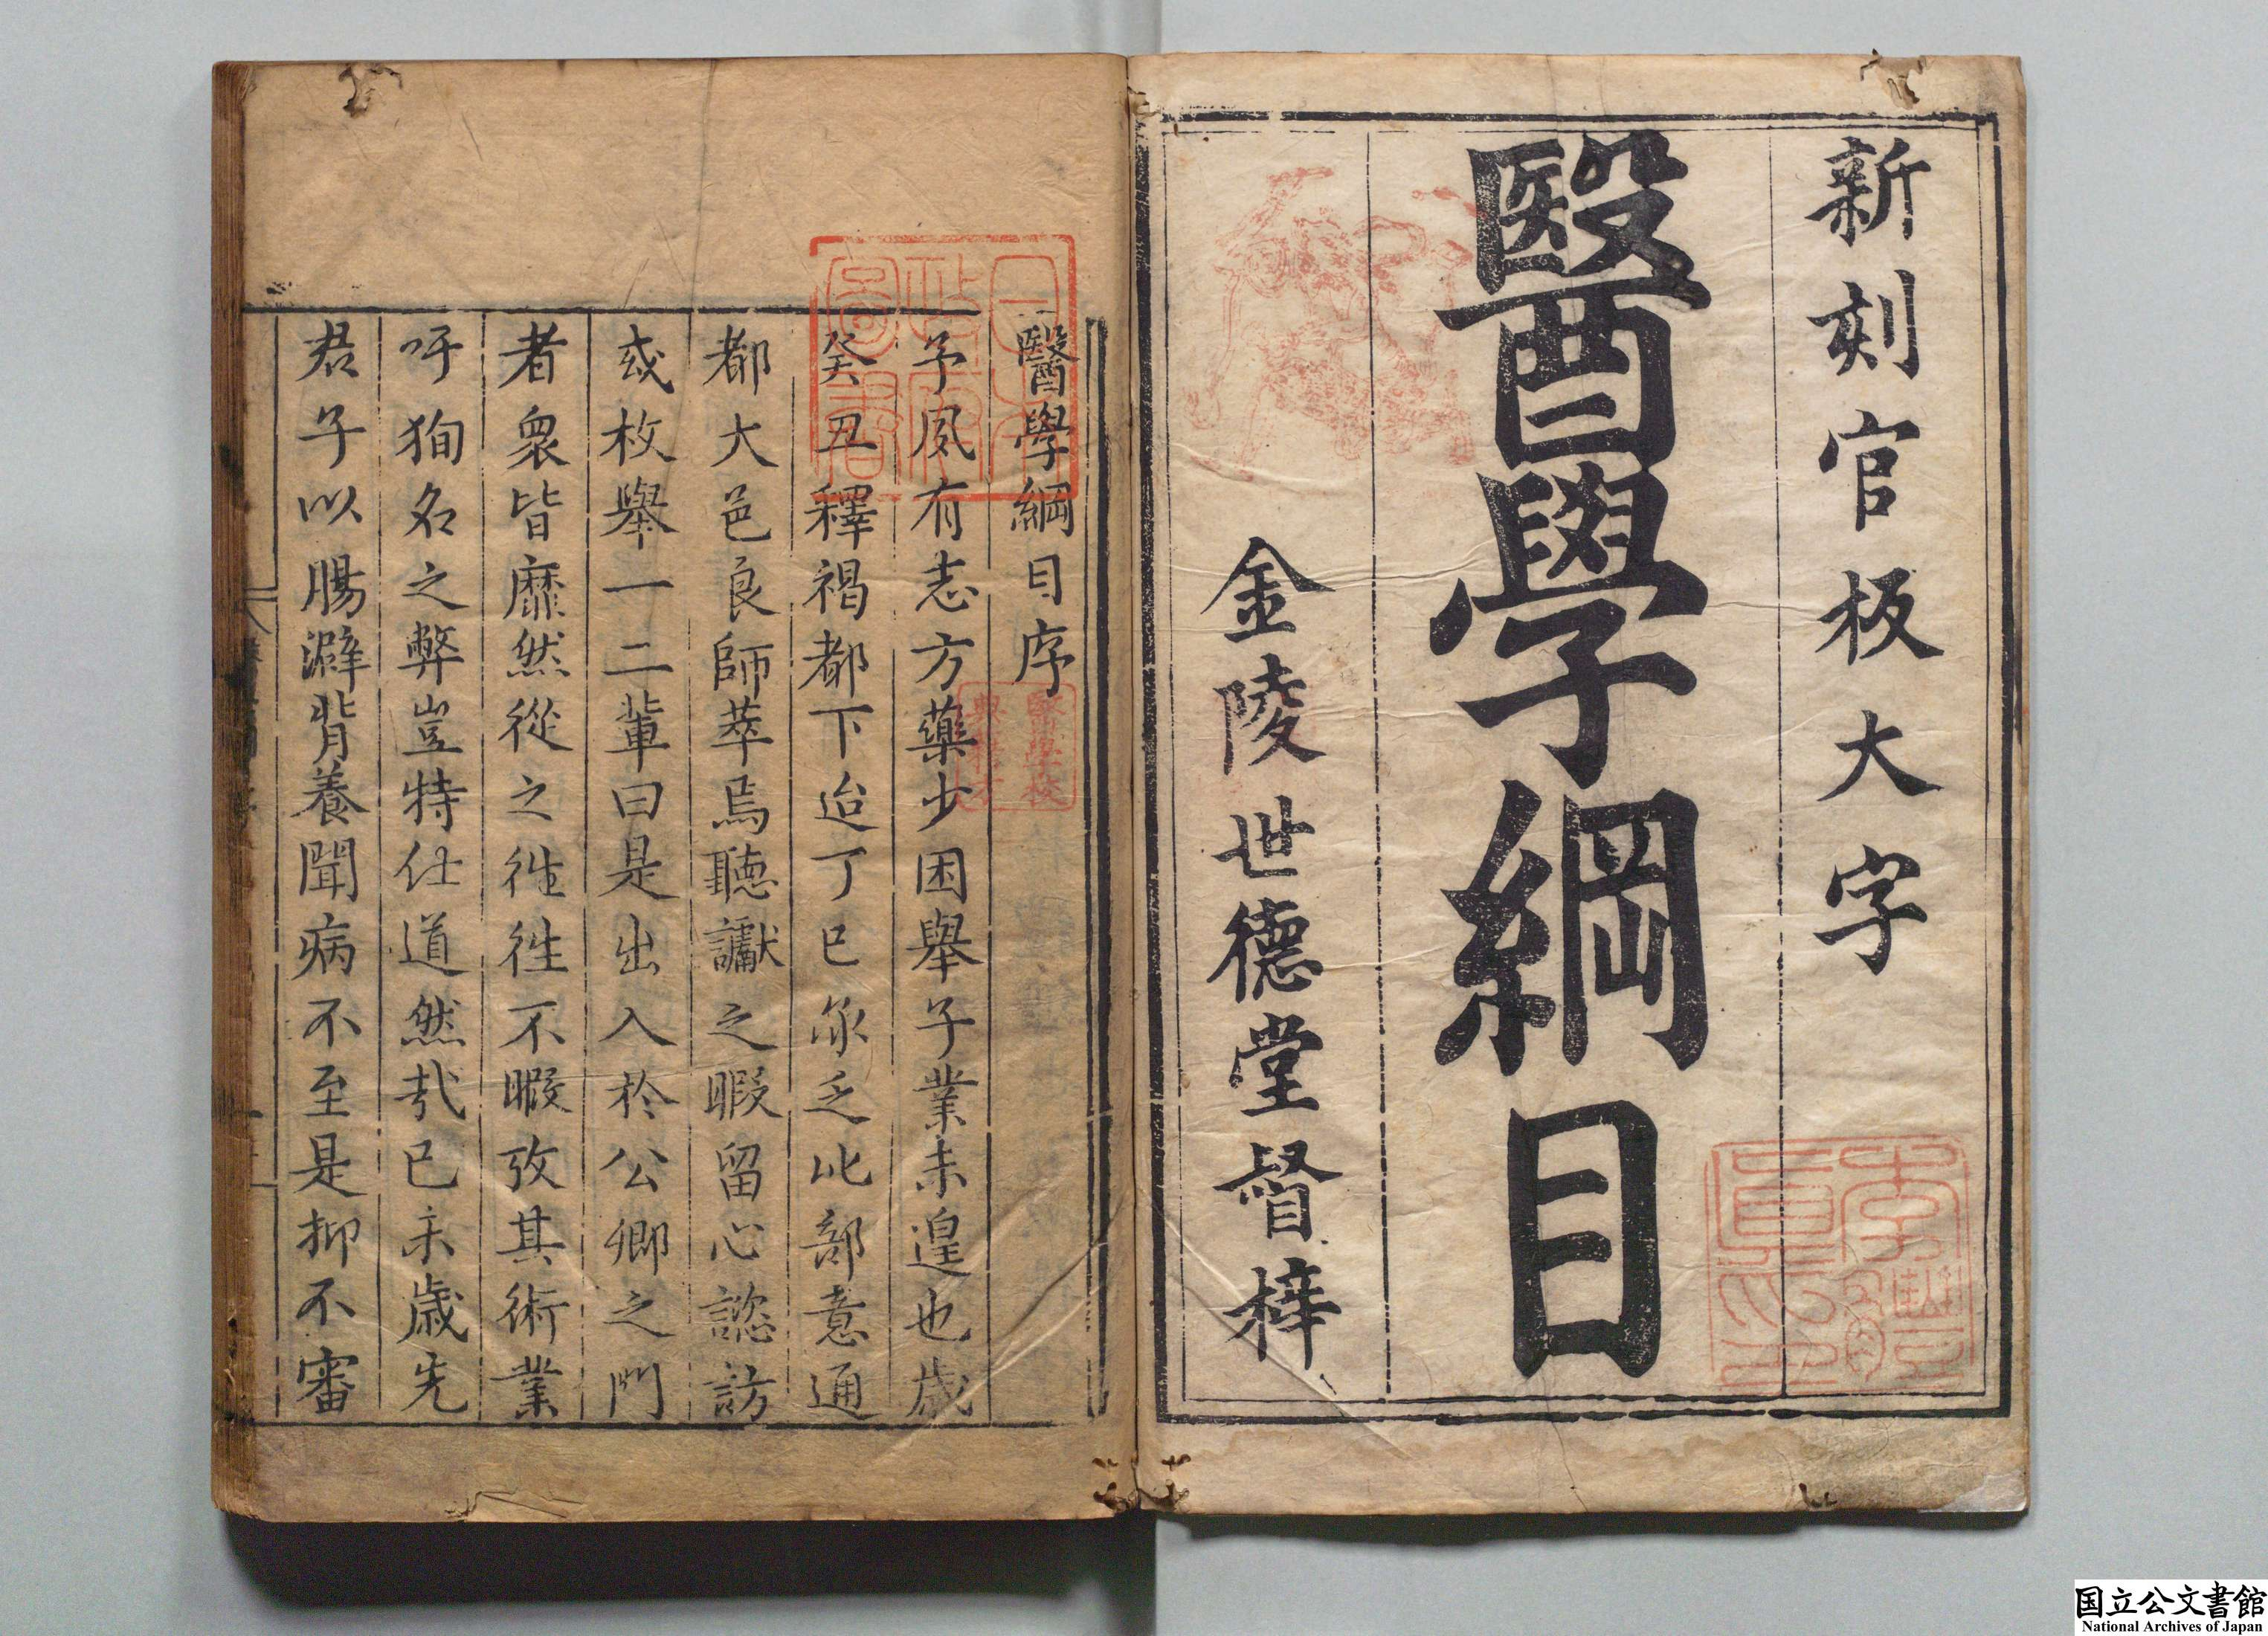 新刻官板大字
醫學綱目
金陵世德堂督梓
醫學綱目序
予夙有志方藥少困舉子業未遑也歲
癸丑釋褐都下迨丁巳承乏比部意通
都大邑良師萃焉聽讞之暇留心諮訪
或枚舉一二輩曰是出入於公卿之門
者衆皆靡然從之徃徃不暇攷其術業
吁狥名之弊豈特仕道然㢤已未歲先
君子以腸澼背養聞病不至是抑不審
日本
政府
圖書
醫學校
典籍
国立公文書館
National Archives of Japan